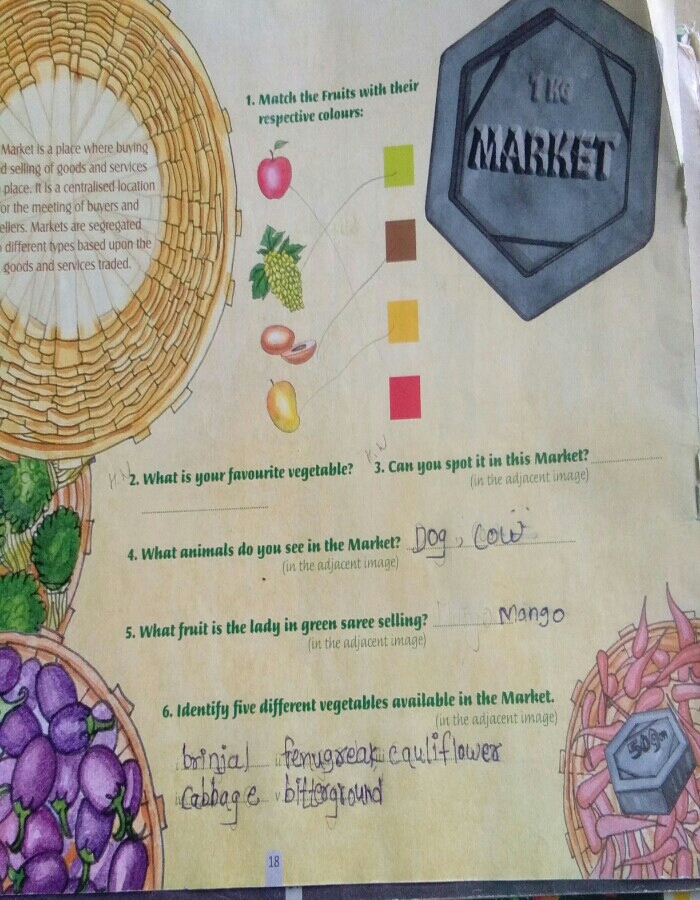 1. Match the Fruits with their
respective colours:
1 KG
MARKET
Market is a place where buying
d selling of goods and services
place. It is a centralised location
or the meeting of buyers and
ellers. Markets are segregated
different types based upon the
goods and services traded.
H.W
2. What is your favourite vegetable?
H.W
3. Can you spot it in this Market?
(in the adjacent image)
4. What animals do you see in the Market? Dog, Cow
(in the adjacent image)
5. What fruit is the lady in green saree selling? Mango
(in the adjacent image)
6. Identify five different vegetables available in the Market.
(in the adjacent image)
brinjal fenugreak cauliflower
Cabbage bitterground
50gm
18